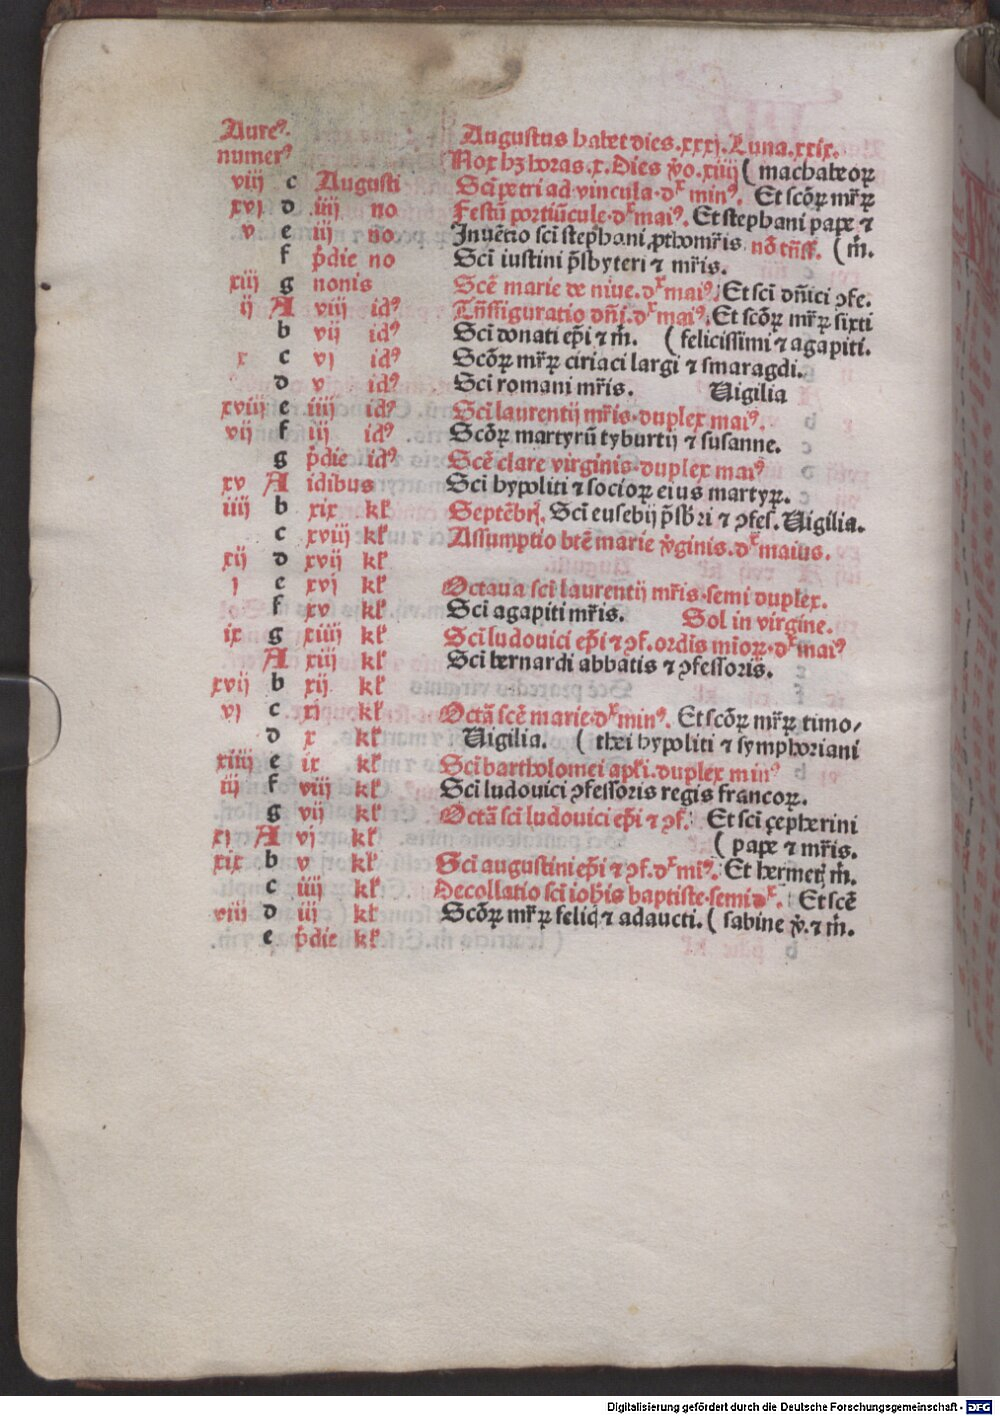 Aureꝰ. Augustus habet dies.xxxj.Luna.xxix.
numerꝰ Nox hꝫ horas.x.Dies v̊o.xiiij ( machabeoꝝ
viij c Augusti Sc̃i petri ad vincula.dx̃ minꝰ. Et sc̃oꝝ mr̃ꝝ
xvj d iiij no Festũ portiũcule.dx̃ maiꝰ. Et stephani pape ⁊
v e iij no Inuẽtio sc̃i stephani ꝓthomr̃is nõ tr̃nsf. ( m̃.
f p̃die no Sc̃i iustini p̃sbyteri ⁊ mr̃is.
xiij g nonis Sc̃e marie de niue.dx̃ maiꝰ. Et sc̃i dñici ꝯfe.
ij A viij idꝰ Tr̃nsfiguratio dñi.dx̃ maiꝰ. Et sc̃oꝝ mr̃ꝝ sixti
b vij idꝰ Sc̃i donati ep̃i ⁊ m̃. ( felicissimi ⁊ agapiti.
x c vj idꝰ Sc̃oꝝ mr̃ꝝ ciriaci largi ⁊ smaragdi.
d v idꝰ Sc̃i romani mr̃is. Uigilia
xviij e iiij idꝰ Sc̃i laurentij mr̃is.duplex maiꝰ.
vij f iij idꝰ Sc̃oꝝ martyrũ tyburtij ⁊ susanne.
g p̃die idꝰ Sc̃e clare virginis.duplex maiꝰ
xv A idibus Sc̃i hypoliti ⁊ socioꝝ eius martyꝝ.
iiij b xix kl̃ Septẽbrj. Sc̃i eusebij p̃sb̃ri ⁊ ꝯfes. Uigilia.
c xviij kl̃ Assumptio btẽ marie v̊ginis.dx̃ maius.
xij d xvij kl̃
j e xvj kl̃ Octaua sc̃i laurentij mr̃is.semi duplex.
f xv kl̃ Sc̃i agapiti mr̃is. Sol in virgine.
ix g xiiij kl̃ Sc̃i ludouici ep̃i ⁊ ꝯf. ordis mioꝝ.dx̃ maiꝰ
A xiij kl̃ Sc̃i bernardi abbatis ⁊ ꝯfessoris.
xvij b xij kl̃
vj c xj kl̃ Octã sc̃e marie.dx̃ minꝰ. Et sc̃oꝝ mr̃ꝝ timo/
d x kl̃ Uigilia. ( thei hypoliti ⁊ symphoriani
xiiij e ix kl̃ Sc̃i bartholomei apl̃i.duplex minꝰ
iij f viij kl̃ Sc̃i ludouici ꝯfessoris regis francoꝝ.
g vij kl̃ Octã sc̃i ludouici ep̃i ⁊ ꝯf. Et sc̃i çepherini
xj A vj kl̃ ( pape ⁊ mr̃is.
xix b v kl̃ Sc̃i augustini ep̃i ⁊ ꝯf.dx̃ miꝰ. Et hermetj m̃.
c iiij kl̃ Decollatio sc̃i ioh̃is baptiste.semi dx̃. Et sc̃e
viij d iij kl̃ Sc̃oꝝ mr̃ꝝ felicj ⁊ adaucti. ( sabine v̊. ⁊ m̃.
e p̃die kl̃
Digitalisierung gefördert durch die Deutsche Forschungsgemeinschaft - DFG